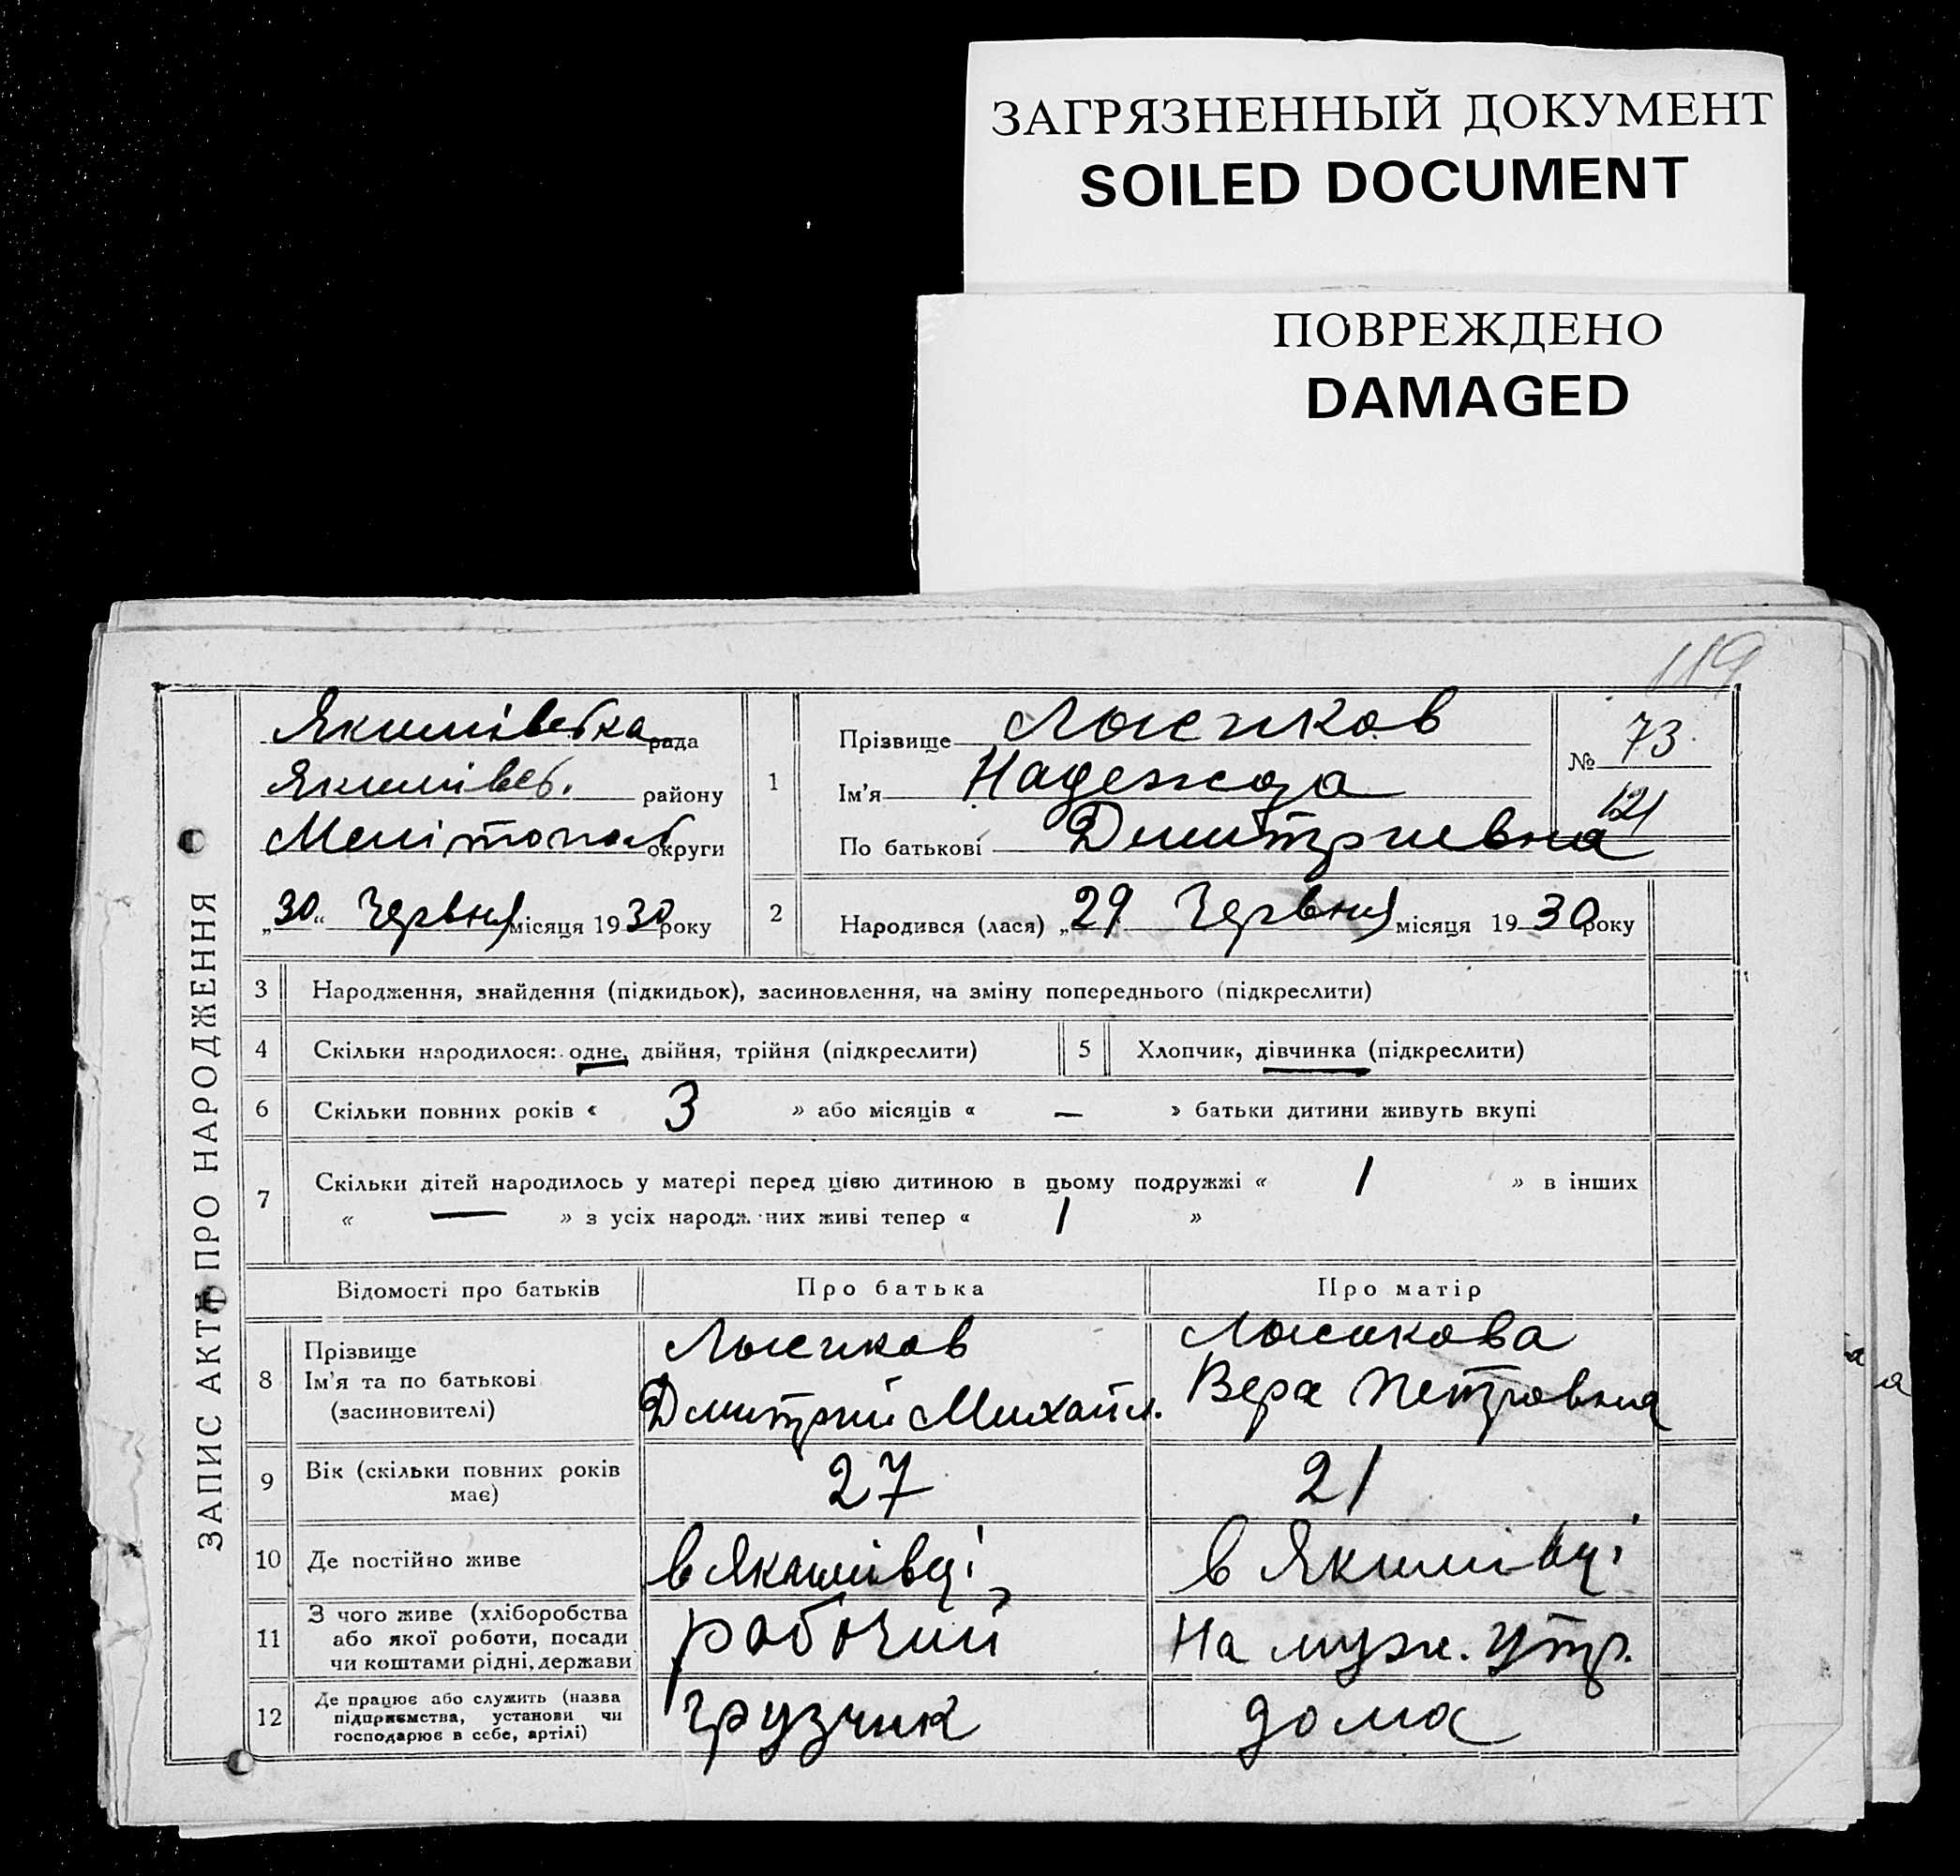 ЗАГРЯЗНЕННЫЙ ДОКУМЕНТ
SOILED DOCUMENT
ПОВРЕЖДЕНО
DAMAGED
119
ЗАПИС АКТУ ПРО НАРОДЖЕННЯ
Якимівська рада
Якимівсь. району
Мелітопол округи
„30“ Червня місяця 1930 року
1
Прізвище Лысиков
Ім'я Надежда
По батькові Дмитриевна
№ 73
121
2 Народився (лася) „29 Червня місяця 1930 року
3 Народження, знайдення (підкидьок), засиновлення, на зміну попереднього (підкреслити)
4 Скільки народилося: одне, двійня, трійня (підкреслити) 5 Хлопчик, дівчинка (підкреслити)
6 Скільки повних років « 3 » або місяців « — » батьки дитини живуть вкупі
7 Скільки дітей народилось у матері перед цією дитиною в цьому подружжі « 1 » в інших
« — » з усіх народж них живі тепер « 1 »
Відомості про батьків Про батька Про матір
8 Прізвище
Ім'я та по батькові
(засиновителі)
Лысиков
Дмитрий Михайл.
Лысикова
Вера Петровна
9 Вік (скільки повних років
має)
27 21
10 Де постійно живе в Якимівці в Якимівці
11 З чого живе (хліборобства
або якої роботи, посади
чи коштами рідні, держави
рабочий На муж. утр.
12 Де працює або служить (назва
підприємства, установи чи
господарює в себе, артілі)
грузчик дома
а
а